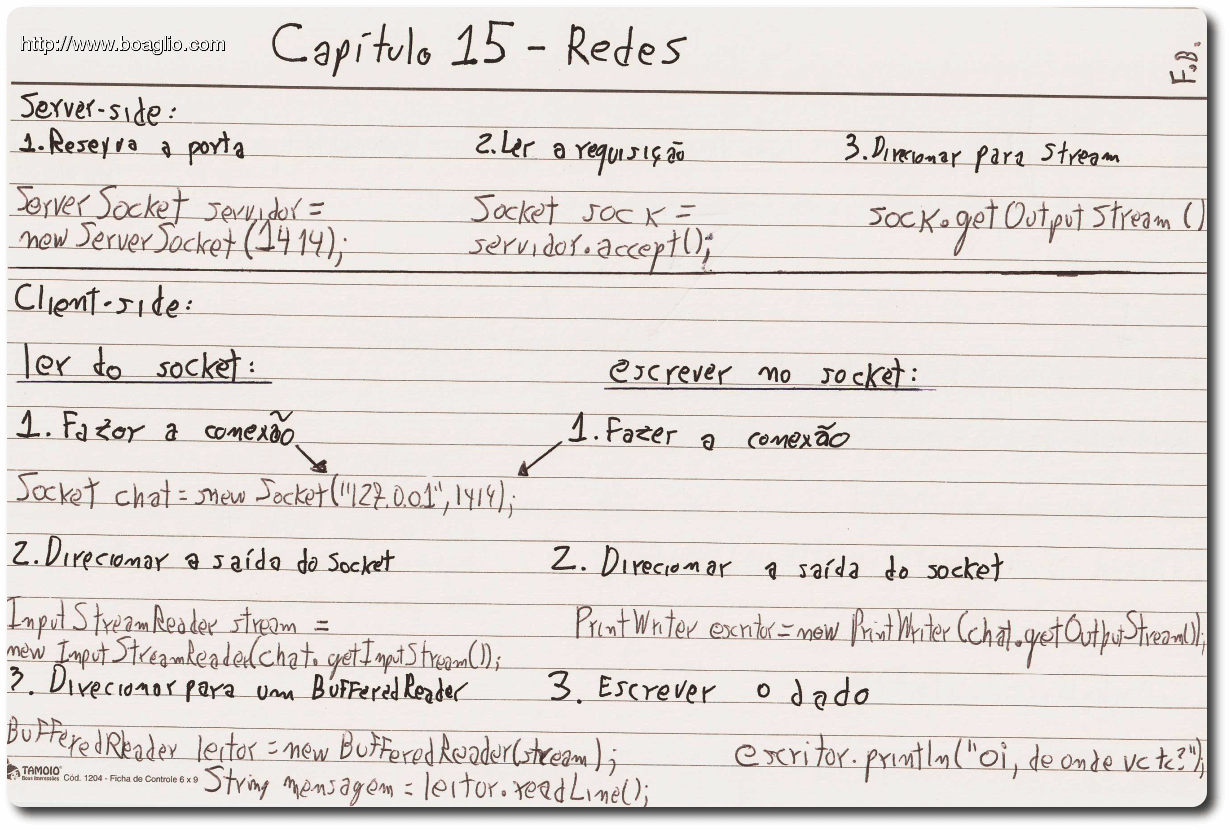 http://www.boaglio.com
Capítulo 15 - Redes
F.B.
Server-side:
1. Reserva a porta
2. Ler a requisição
3. Direcionar para stream
ServerSocket servidor =
new ServerSocket(1414);
Socket sock =
servidor.accept();
sock.getOutputStream()
Client-side:
ler do socket:
escrever no socket:
1. Fazer a conexão
1. Fazer a conexão
Socket chat = new Socket("127.0.0.1", 1414);
2. Direcionar a saída do Socket
2. Direcionar a saída do socket
InputStreamReader stream =
new InputStreamReader(chat.getInputStream());
PrintWriter escritor = new PrintWriter(chat.getOutputStream());
3. Direcionar para um BufferedReader
3. Escrever o dado
BufferedReader leitor = new BufferedReader(stream);
String mensagem = leitor.readLine();
escritor.println("oi, de onde vc tc?");
TAMOIO
Bons Impressões
Cód. 1204 - Ficha de Controle 6 x 9